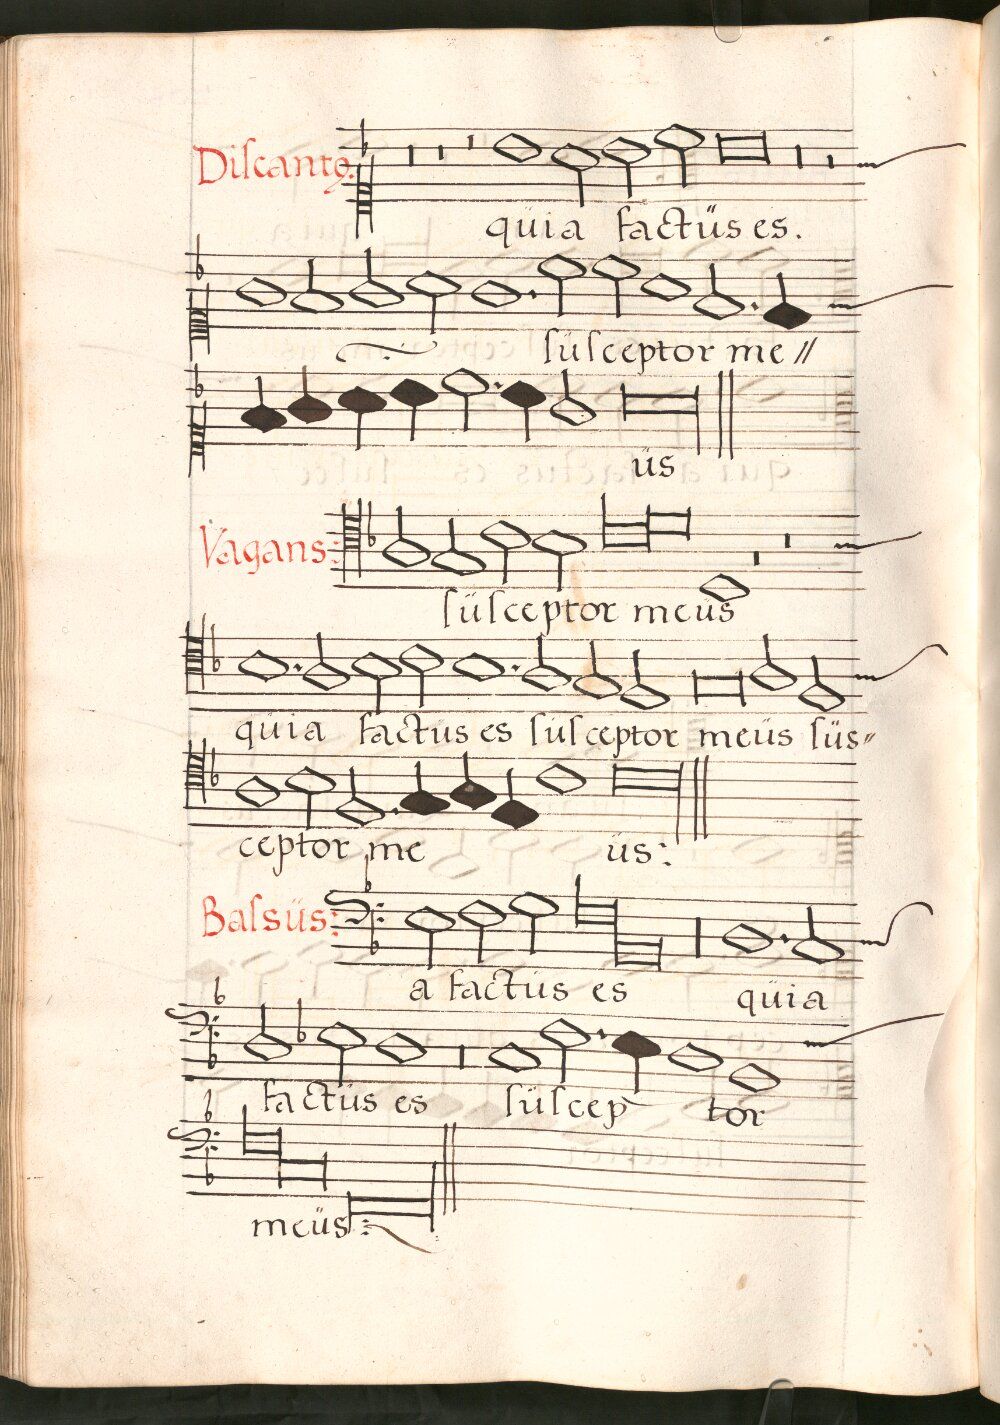 Diſcantꝯ.
qüia factüs es.
ſüſceptor me〃
üs
Vagans:
ſüſceptor meüs
qüia factus es ſüſceptor meüs ſüs〃
ceptor me üs:
Baſsüs:
a factüs es qüia
factüs es ſüſcep tor
meüs: